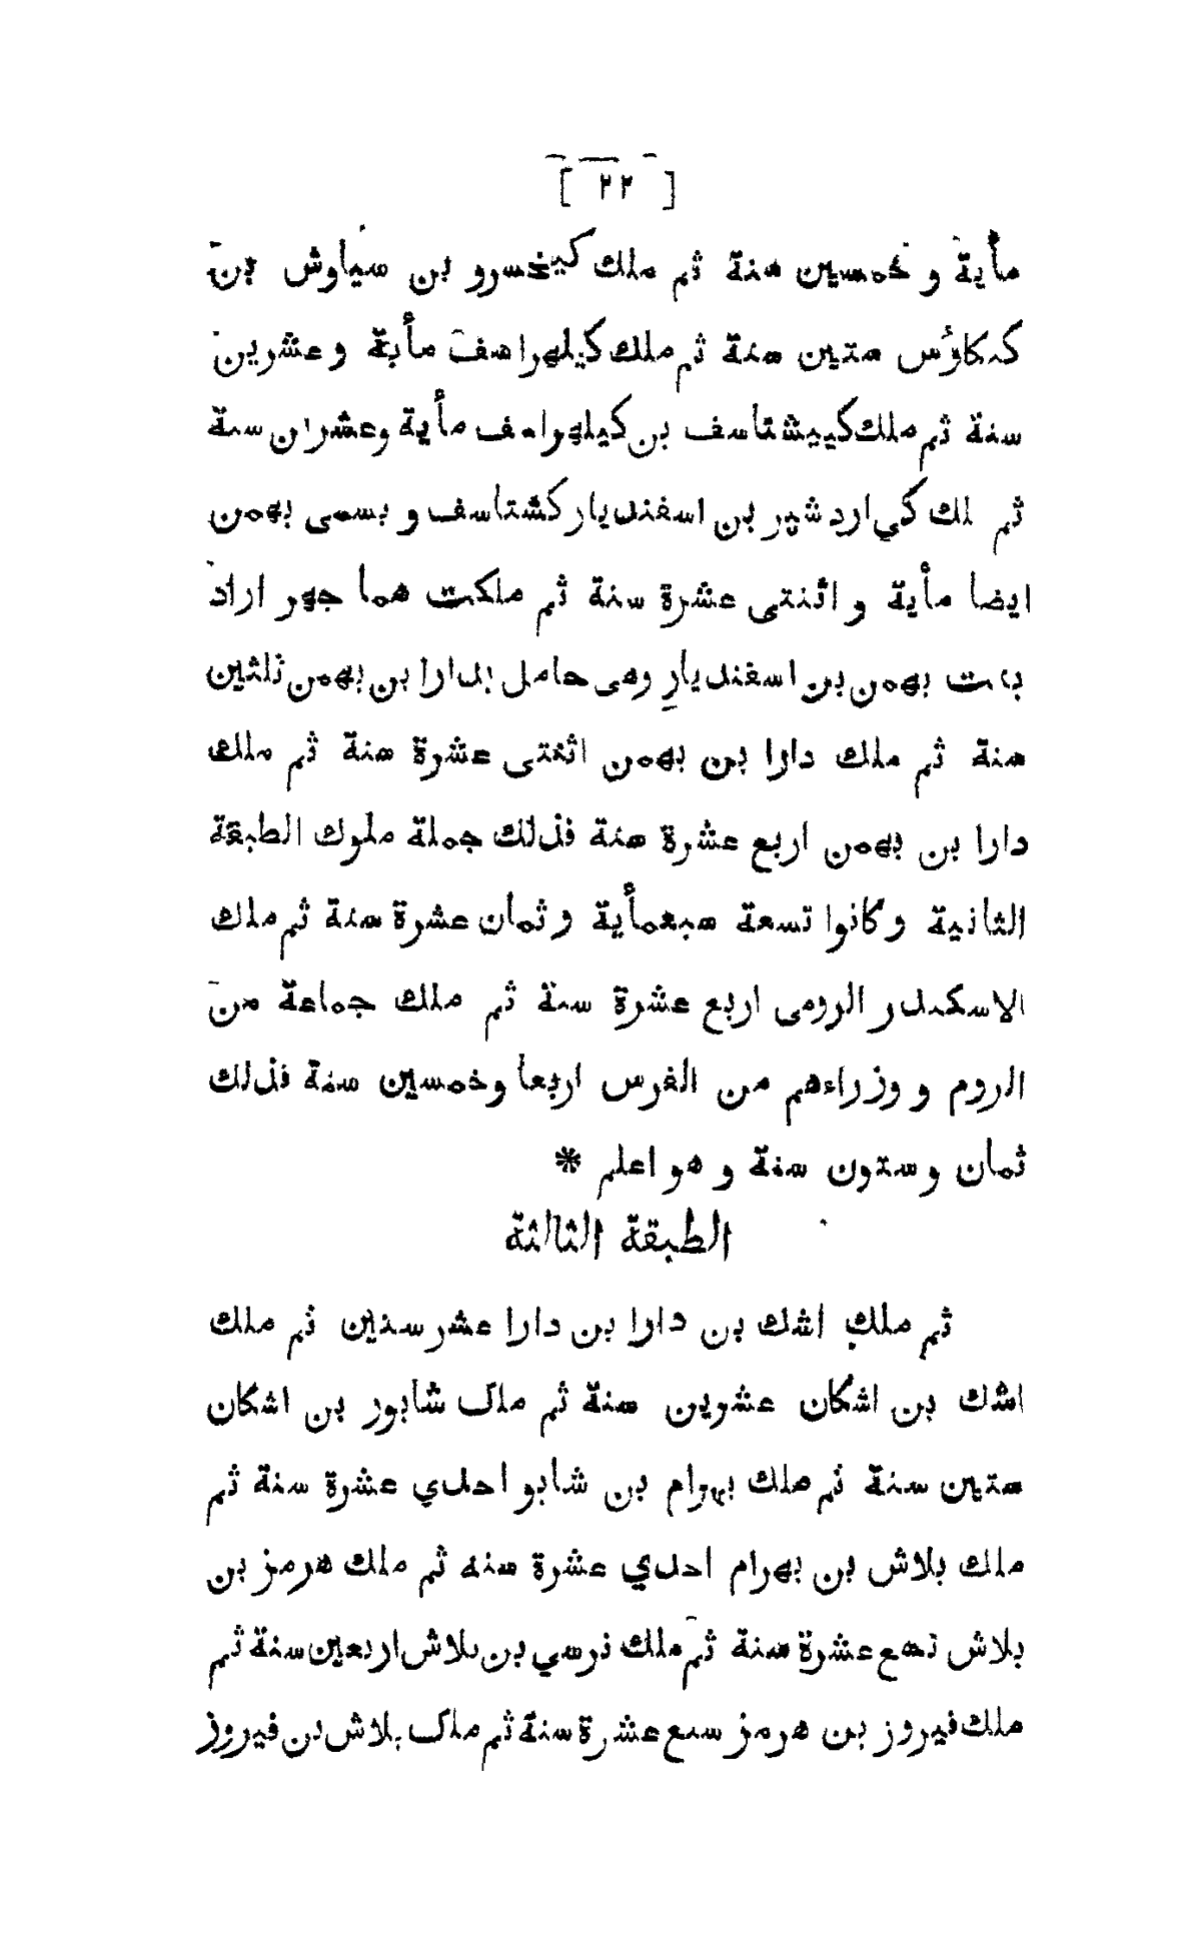 [ ٢٢ ]
مأية و خمسين سنة ثم ملك كيخسرو بن سياوش بن
كيكاؤس ستين سنة ثم ملك كيلهراسف مأية وعشرين
سنة ثم ملك كييشتاسف بن كيلهراسف مأية وعشران سنة
ثم لك كي اردشير بن اسفنديار كشتاسف و بسمى بهمن
ايضا مأية و اثنتى عشرة سنة ثم ملكت هما جهر اراد
بنت بهمن بن اسفنديار وهى حامل بدارا بن بهمن ثلثين
سنة ثم ملك دارا بن بهمن اثنتى عشرة سنة ثم ملك
دارا بن بهمن اربع عشرة سنة فذلك جملة ملوك الطبقة
الثانية وكانوا تسعة سبعمأية و ثمان عشرة سنة ثم ملك
الاسكندر الرومى اربع عشرة سنة ثم ملك جماعة من
الروم و وزراءهم من الفرس اربعا وخمسين سنة فذلك
ثمان وستون سنة و هو اعلم *
الطبقة الثالثة
ثم ملك اشك بن دارا بن دارا عشر سنين ثم ملك
اشك بن اشكان عشرين سنة ثم ملک شابور بن اشكان
ستين سنة ثم ملك بهرام بن شابو احدي عشرة سنة ثم
ملك بلاش بن بهرام احدي عشرة سنه ثم ملك هرمز بن
بلاش تسع عشرة سنة ثم ملك نرسي بن بلاش اربعين سنة ثم
ملك فيروز بن هرمز سبع عشرة سنة ثم ملک بلاش بن فيروز